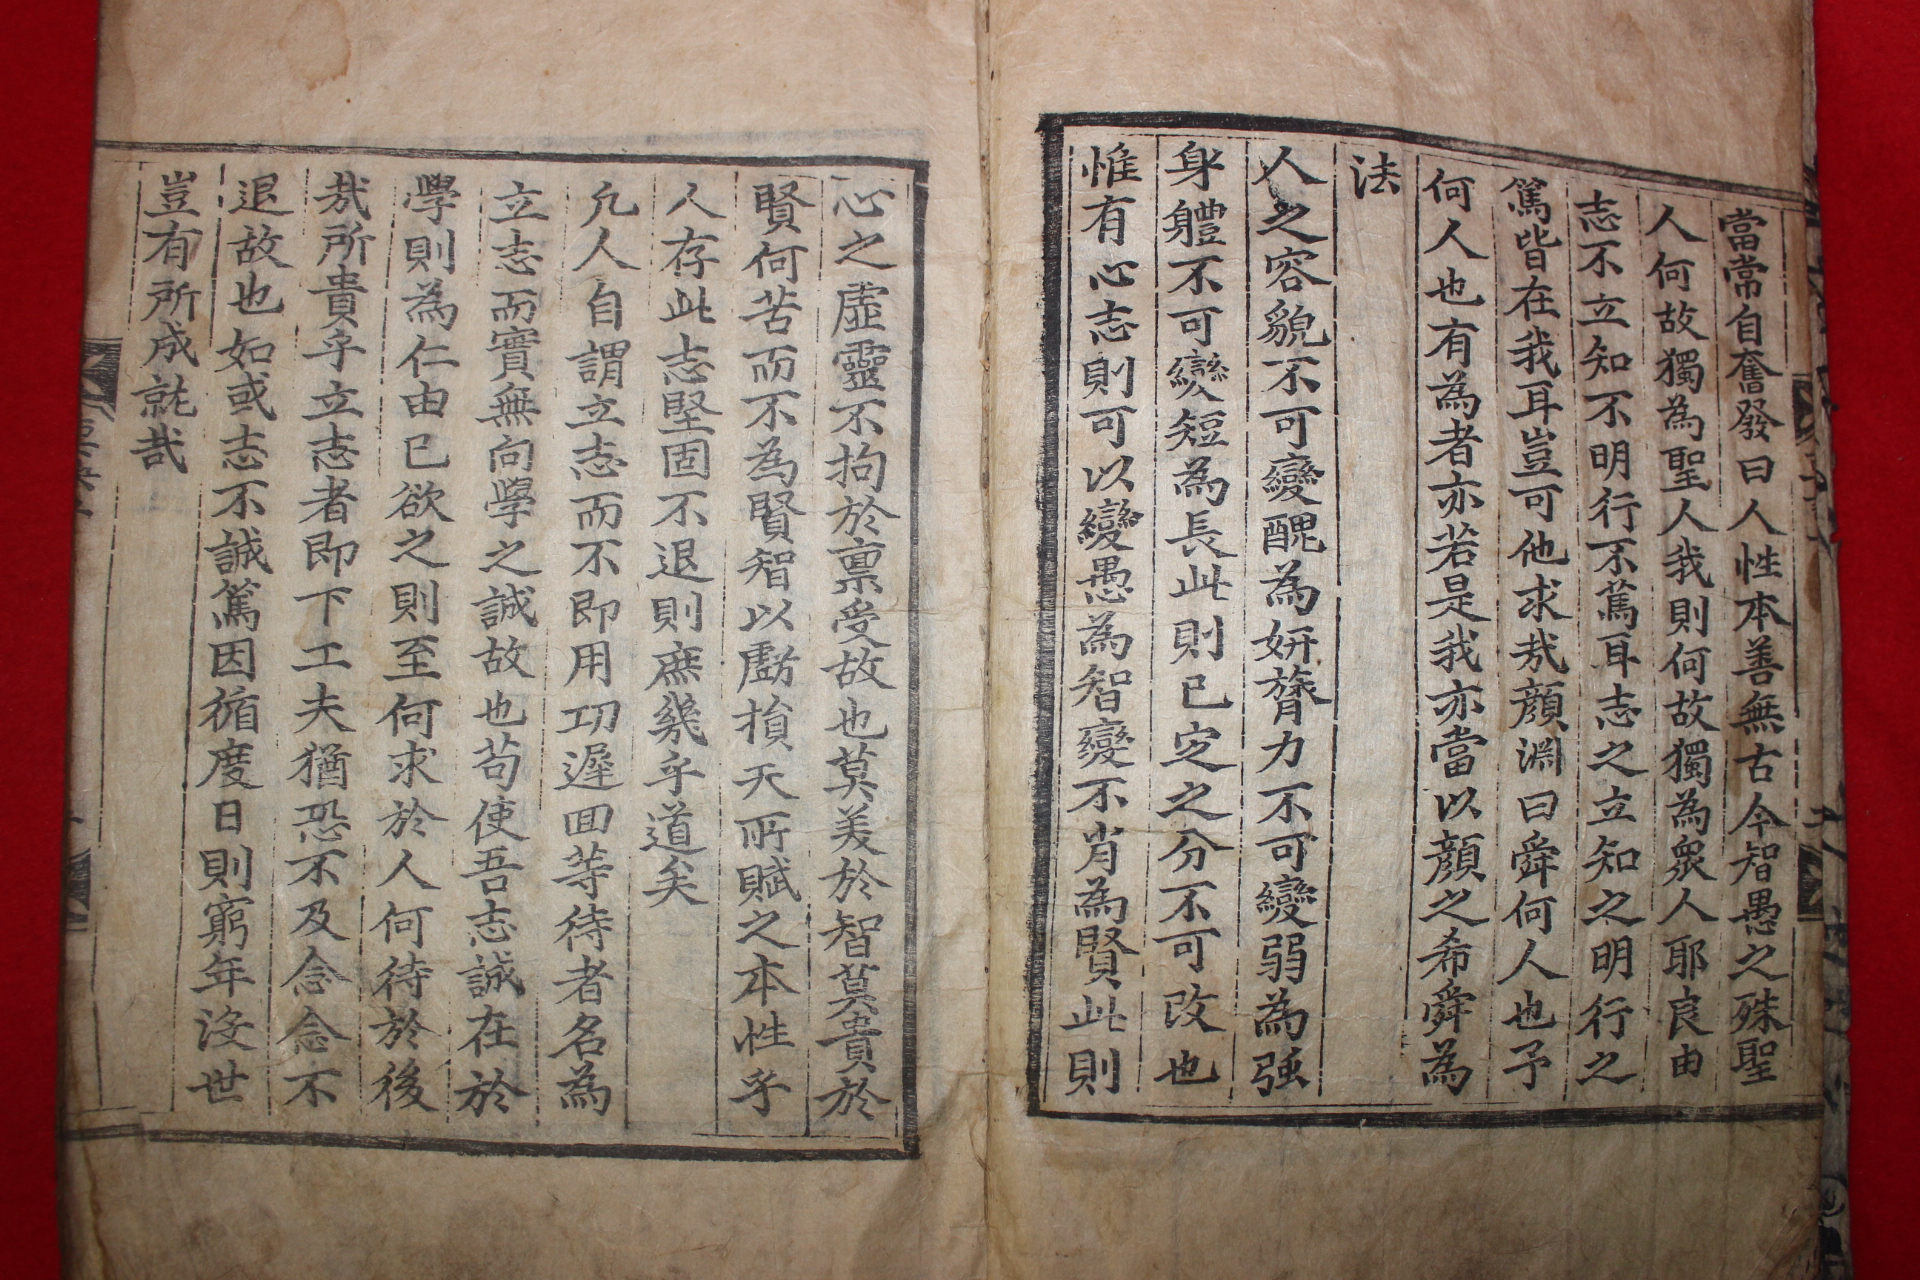 當常自奮發曰人性本善無古今智愚之殊聖
人何故獨為聖人我則何故獨為衆人耶良由
志不立知不明行不篤耳志之立知之明行之
篤皆在我耳豈可他求㢤顔淵曰舜何人也予
何人也有為者亦若是我亦當以顔之希舜為
法
人之容貌不可變醜為妍膂力不可變弱為强
身體不可變短為長此則已定之分不可改也
惟有心志則可以變愚為智變不肖為賢此則
心之虛靈不拘於禀受故也莫美於智莫貴於
賢何苦而不為賢智以虧損天所賦之本性乎
人存此志堅固不退則庶幾乎道矣
凡人自謂立志而不即用功遲回等待者名為
立志而實無向學之誠故也苟使吾志誠在於
學則為仁由已欲之則至何求於人何待於後
㢤所貴乎立志者即下工夫猶恐不及念念不
退故也如或志不誠篤因循度日則窮年沒世
豈有所成就哉